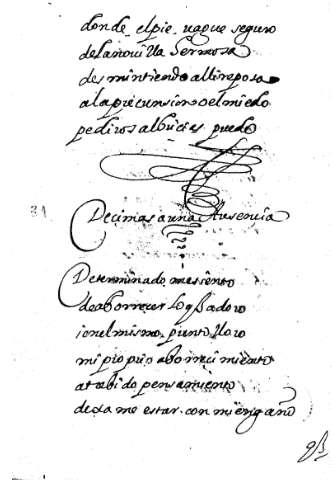 donde el pie uaque seguro
de la nouilla Hermosa
desmintiendo alli reposa
a la precursion del miedo
pediros albricies puedo
31
Decimas a una Ausencia
Determinado me siento
de aborrecer lo q adoro
i en el mismo punto lloro
mi propio aborrecimiento
atrebido pensamiento
dexame estar con mi engaño